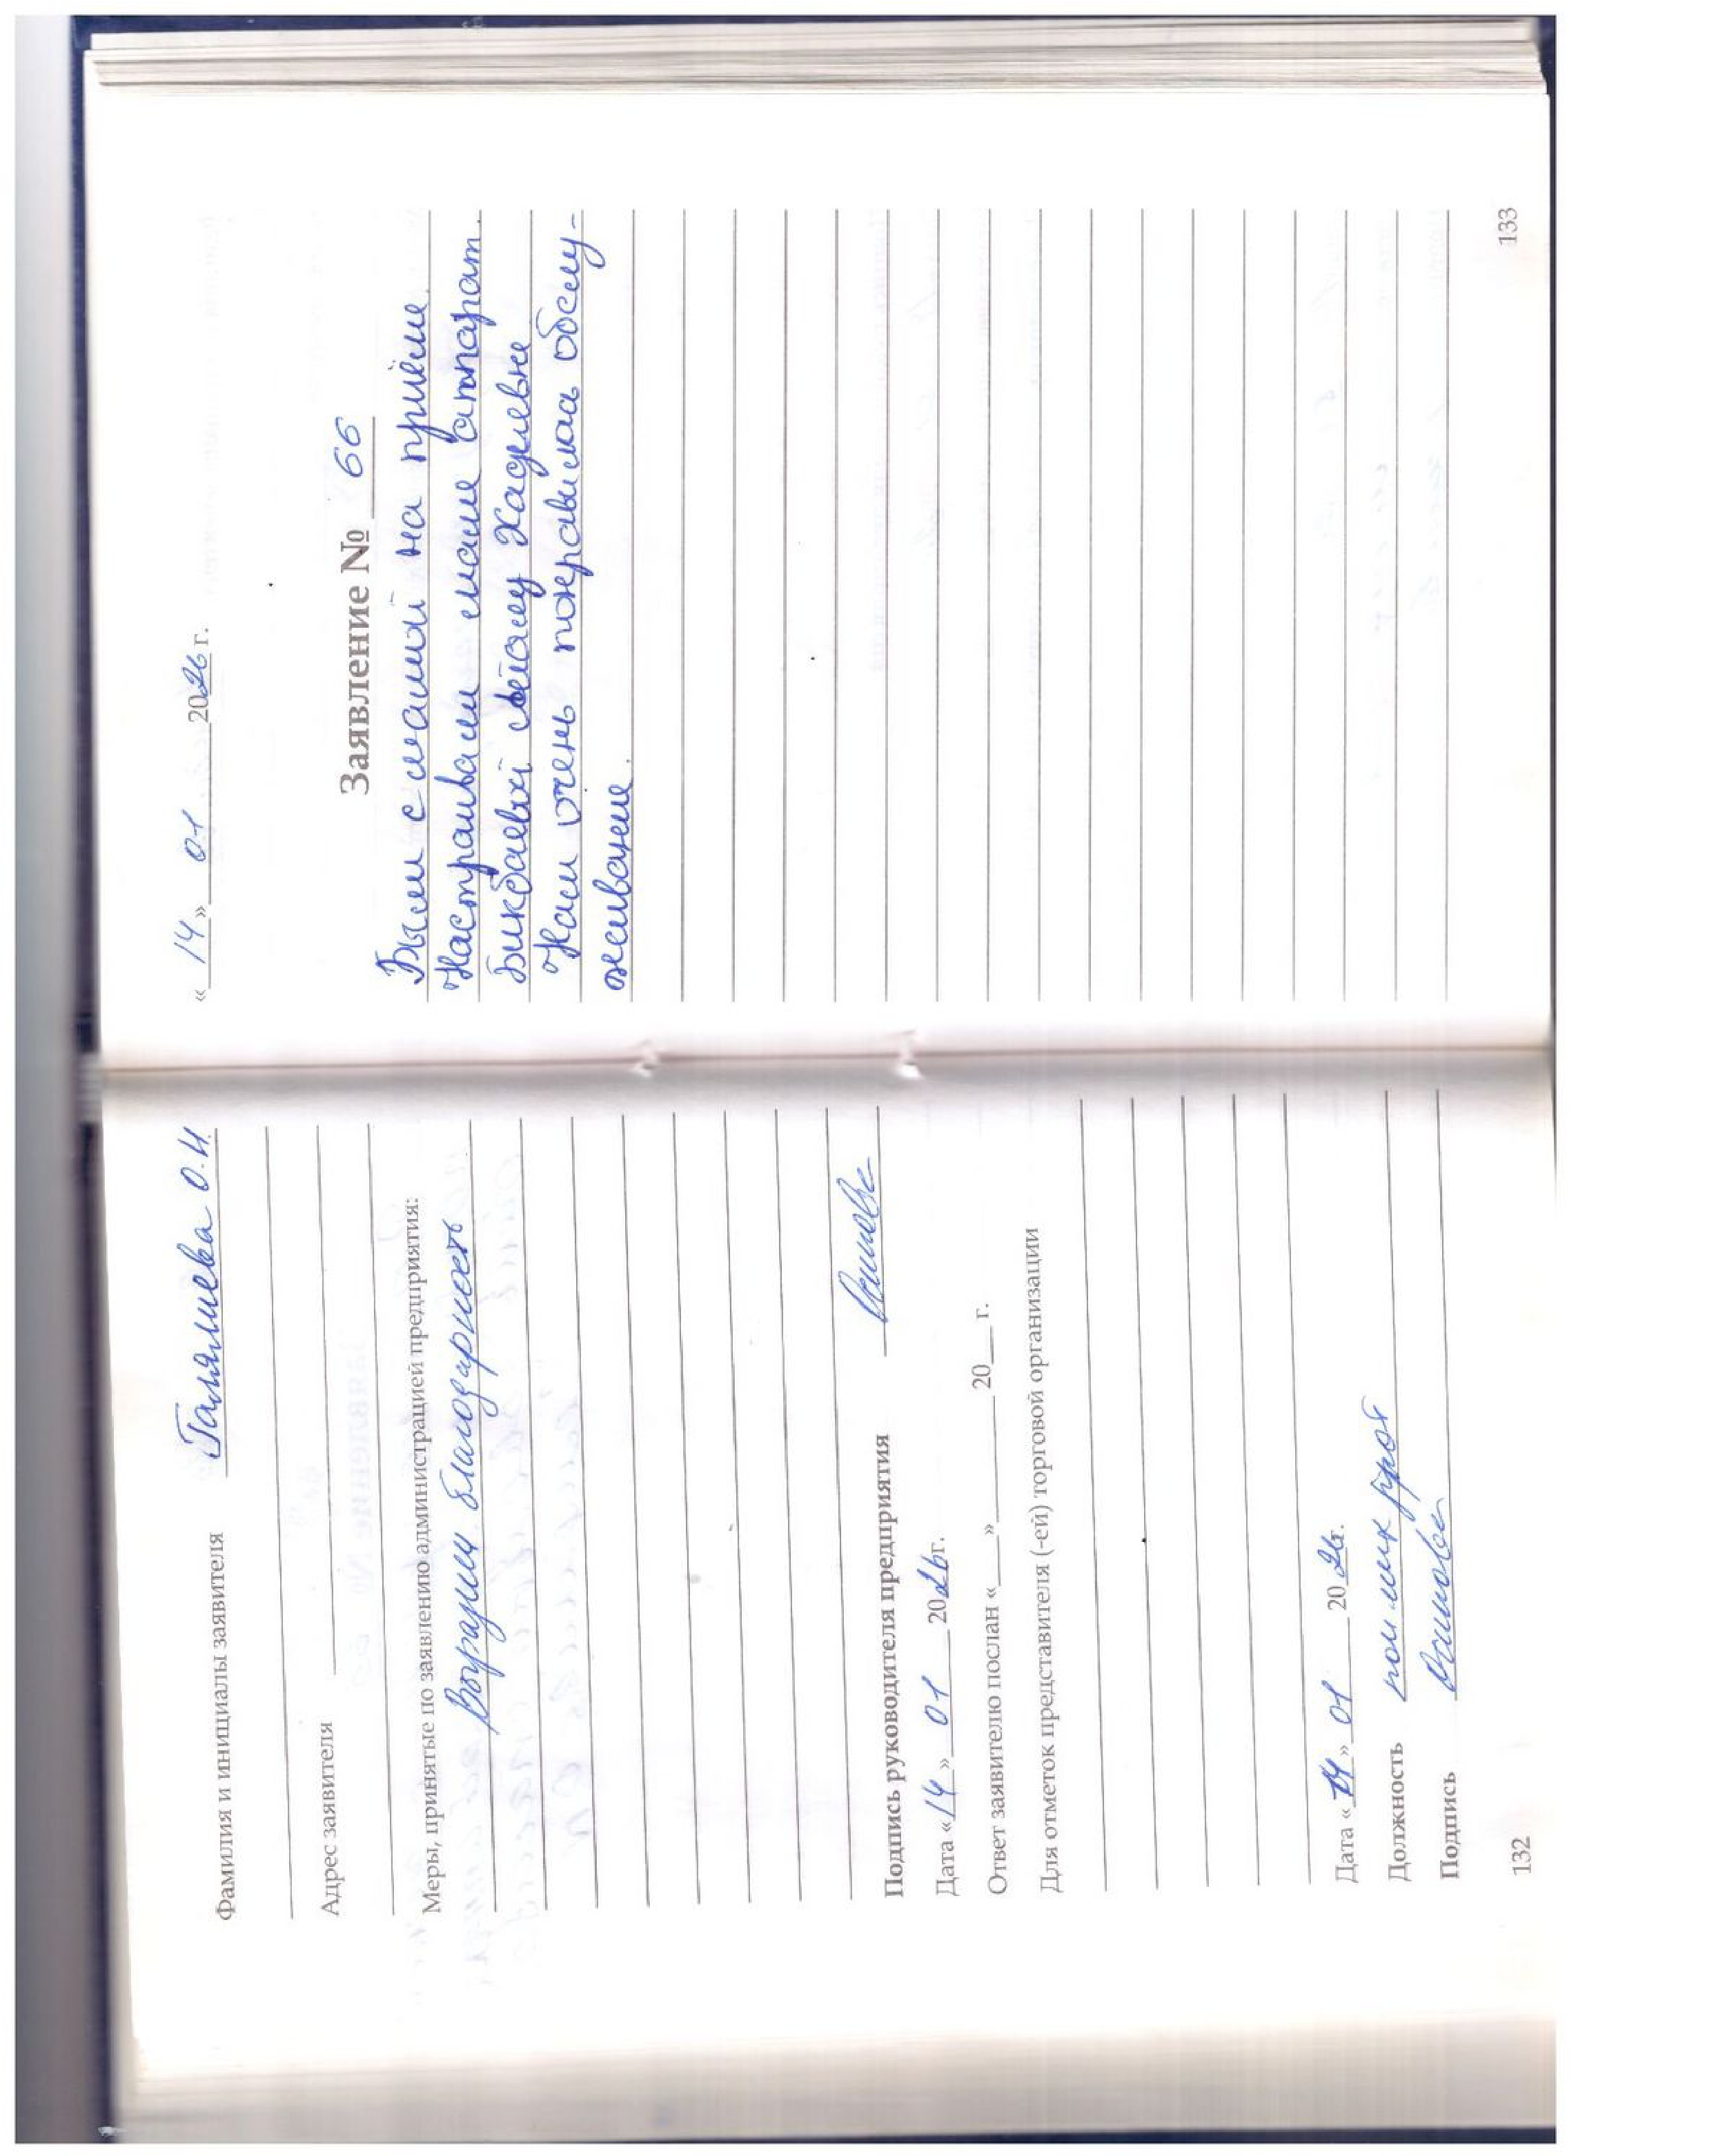 Фамилия и инициалы заявителя Галямиева О.И.
Адрес заявителя
Меры, принятые по заявлению администрацией предприятия:
Выразим благодарность
Подпись руководителя предприятия
Дата «14» 01 2026г.
Ответ заявителю послан «___» ______ 20___ г.
Для отметок представителя (-ей) торговой организации
Дата «14» 01 2026г.
Должность
Подпись
132
«14» 01 2026 г.
Заявление № 66
Были с мамой на приёме.
Настраивали маме аппарат.
Бикбаевой Хадиевне
Нам очень понравилаа обслу-
живание.
133